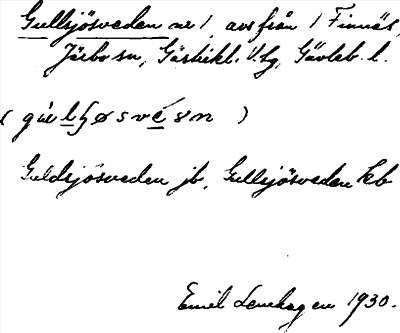 Gullsjösveden nr 1, avs från 1 Finnäs,
Järbo sn, Gästrikl. V. tg, Gävleb. l.
Guldsjösveden jb, Gullsjösveden kb
Emil Lenhagen 1930.